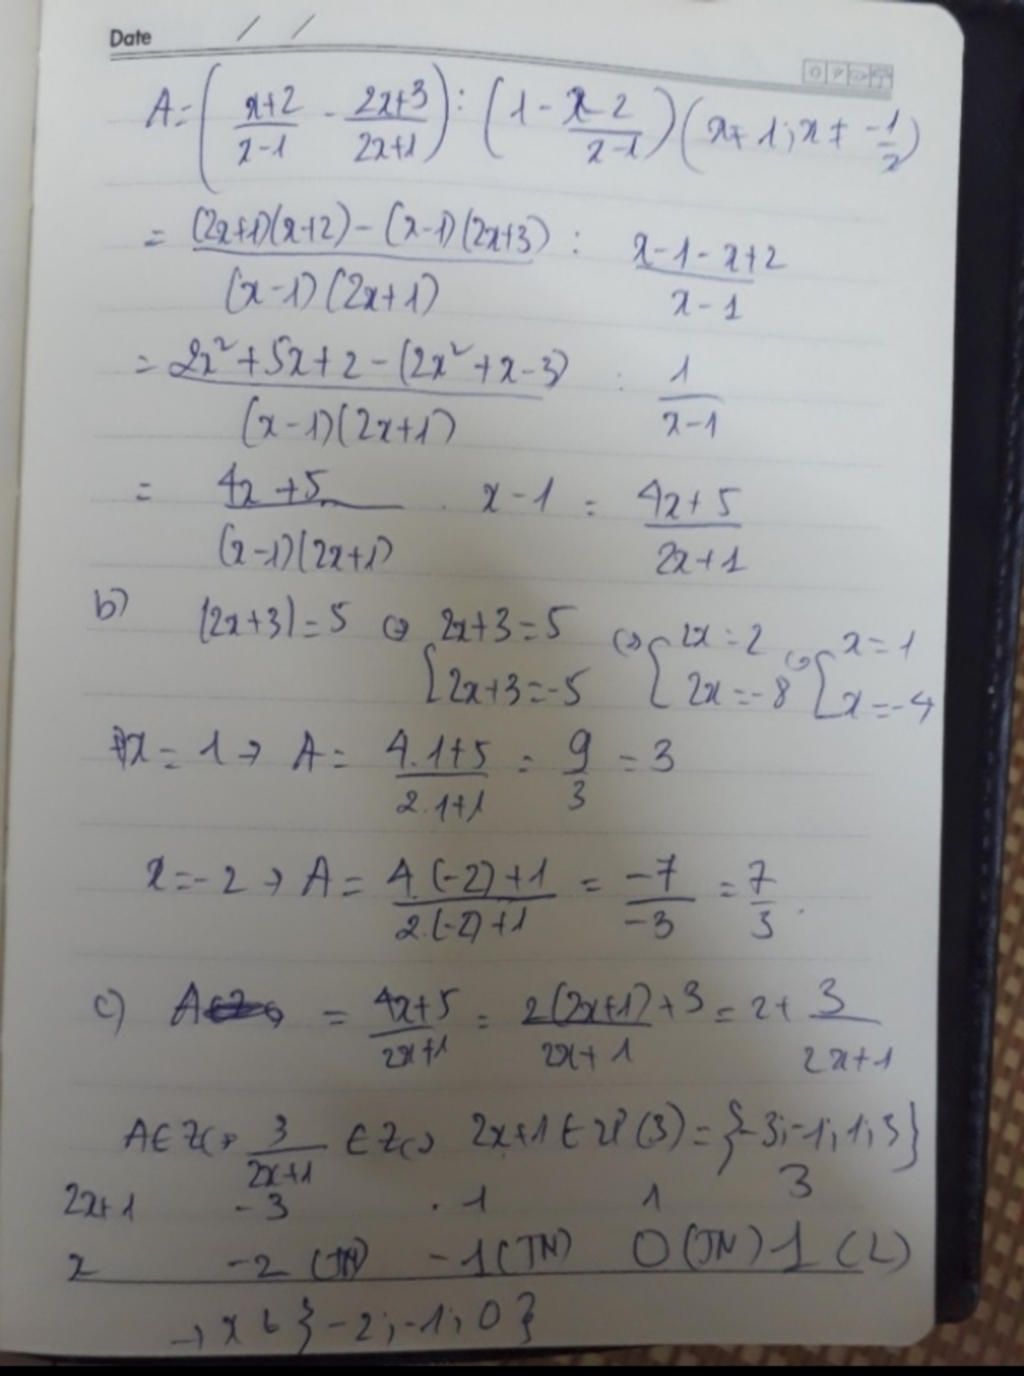 Date / /
A = ( (x+2)/(x-1) - (2x+3)/(2x+1) ) : ( 1 - (x-2)/(x-1) ) ( x ≠ 1 ; x ≠ -1/2 )
= ((2x+1)(x+2) - (x-1)(2x+3))/((x-1)(2x+1)) : (x-1-x+2)/(x-1)
= (2x²+5x+2-(2x²+x-3))/((x-1)(2x+1)) : 1/(x-1)
= (4x+5)/((x-1)(2x+1)) . x-1 = (4x+5)/(2x+1)
b) |2x+3| = 5 ⇔ [ 2x+3=5 ; 2x+3=-5 ⇔ [ 2x=2 ; 2x=-8 ⇔ [ x=1 ; x=-4
x = 1 → A = (4.1+5)/(2.1+1) = 9/3 = 3
x = -2 → A = (4.(-2)+1)/(2.(-2)+1) = -7/-3 = 7/3 .
c) A = (4x+5)/(2x+1) = (2(2x+1)+3)/(2x+1) = 2 + 3/(2x+1)
A ∈ Z ⇔ 3/(2x+1) ∈ Z ⇔ 2x+1 ∈ Ư(3) = {-3;-1;1;3}
2x+1 -3 -1 1 3
x -2 (TM) -1 (TM) 0 (TM) 1 (L)
→ x ∈ {-2;-1;0}